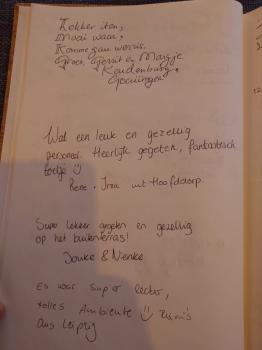 Lekker iten,
Mooi waar,
Komme gau werris.
Groen. Gerrit en Margje
Koudenburg,
Groningen
Wat een leuk en gezellig
personeel. Heerlijk gegeten, fantastisch
toetje ☺
Rene + Irza uit Hoofddorp.
Super lekker gegeten en gezellig
op het buitenterras!
Jouke & Nienke
Es war super lecker,
tolles Ambiente ☺
aus Leipzig